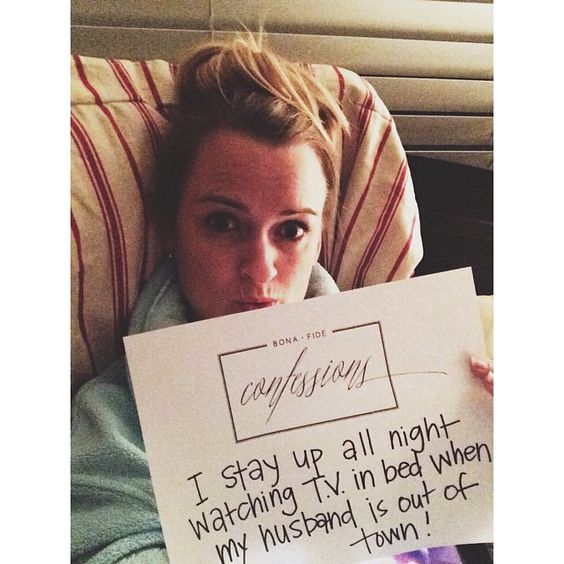 BONA · FIDE
confessions
I stay up all night
watching T.V. in bed when
my husband is out of
town!